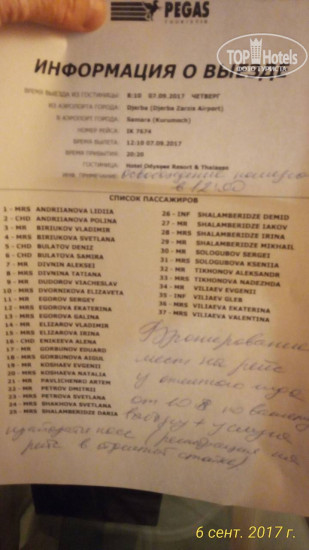 PEGAS
TOURISTIK
TOPHotels
ИНФОРМАЦИЯ О ВЫЕЗДЕ
ВРЕМЯ ВЫЕЗДА ИЗ ГОСТИНИЦЫ: 8:10 07.09.2017 ЧЕТВЕРГ
ИЗ АЭРОПОРТА ГОРОДА: Djerba (Djerba Zarzis Airport)
В АЭРОПОРТ ГОРОДА: Samara (Kurumoch)
НОМЕР РЕЙСА
ВРЕМЯ ВЫЛЕТА: 12:10 07.09.2017
ВРЕМЯ ПРИБЫТИЯ: 20:20
ГОСТИНИЦА: Hotel Odyssee Resort & Thalasso
освобождение номеров
в 12:00
СПИСОК ПАССАЖИРОВ
1 - MRS ANDRIIANOVA LIDIIA
2 - CHD ANDRIIANOVA POLINA
3 - MR BIRIUKOV VLADIMIR
4 - MRS BIRIUKOVA SVETLANA
5 - CHD BULATOV DENIZ
6 - CHD BULATOVA SAMIRA
7 - MR DIVNIN ALEKSEI
8 - MRS DIVNINA TATIANA
9 - MR DUDOROV VIACHESLAV
10 - MRS DVORNIKOVA ELIZAVETA
11 - MR EGOROV SERGEY
12 - MRS EGOROVA EKATERINA
13 - MRS EGOROVA GALINA
14 - MR ELIZAROV VLADIMIR
15 - MRS ELIZAROVA IRINA
16 - CHD ENIKEEVA ALENA
17 - MR GORBUNOV EDUARD
18 - MRS GORBUNOVA ASIOL
19 - MR KOSHAEV EVGENII
20 - MRS KOSHAEVA NATALIA
21 - MR PAVLICHENKO ARTEM
22 - MR PETROV DMITRII
23 - MRS PETROVA SVETLANA
24 - MRS SHAKHOVA SVETLANA
25 - MRS SHALAMBERIDZE DARIA
26 - INF SHALAMBERIDZE DEMID
27 - MR SHALAMBERIDZE IAKOV
28 - MRS SHALAMBERIDZE IRINA
29 - MR SHALAMBERIDZE MIKHAIL
30 - MR SOLOGUBOV SERGEI
31 - MRS SOLOGUBOVA KSENIIA
32 - MR TIKHONOV ALEKSANDR
33 - MRS TIKHONOVA NADEZHDA
34 - MR VILIAEV EVGENII
35 - INF VILIAEV GLEB
36 - MRS VILIAEVA EKATERINA
37 - MRS VILIAEVA VALENTINA
Бронирование
мест на рейс
у отельного гида
от 10 $ по вашему
выбору +
рейс в
6 сент. 2017 г.